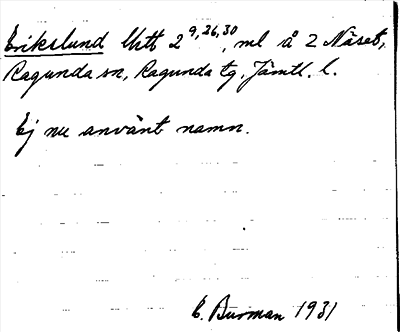 Erikslund Utt 2 9,26,30, ml å 2 Näset,
Ragunda sn, Ragunda tg, Jämtl. l.
Ej nu använt namn.
E. Burman 1931